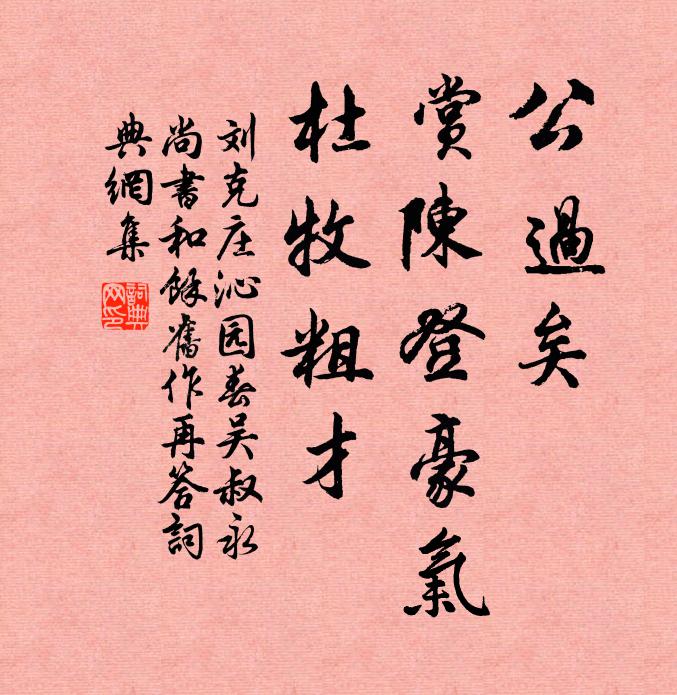 公過矣
賞陳登豪氣
杜牧粗才
刘克庄沁园春吴叔永
尚書和餘舊作再答詞
典網集
詞典网印